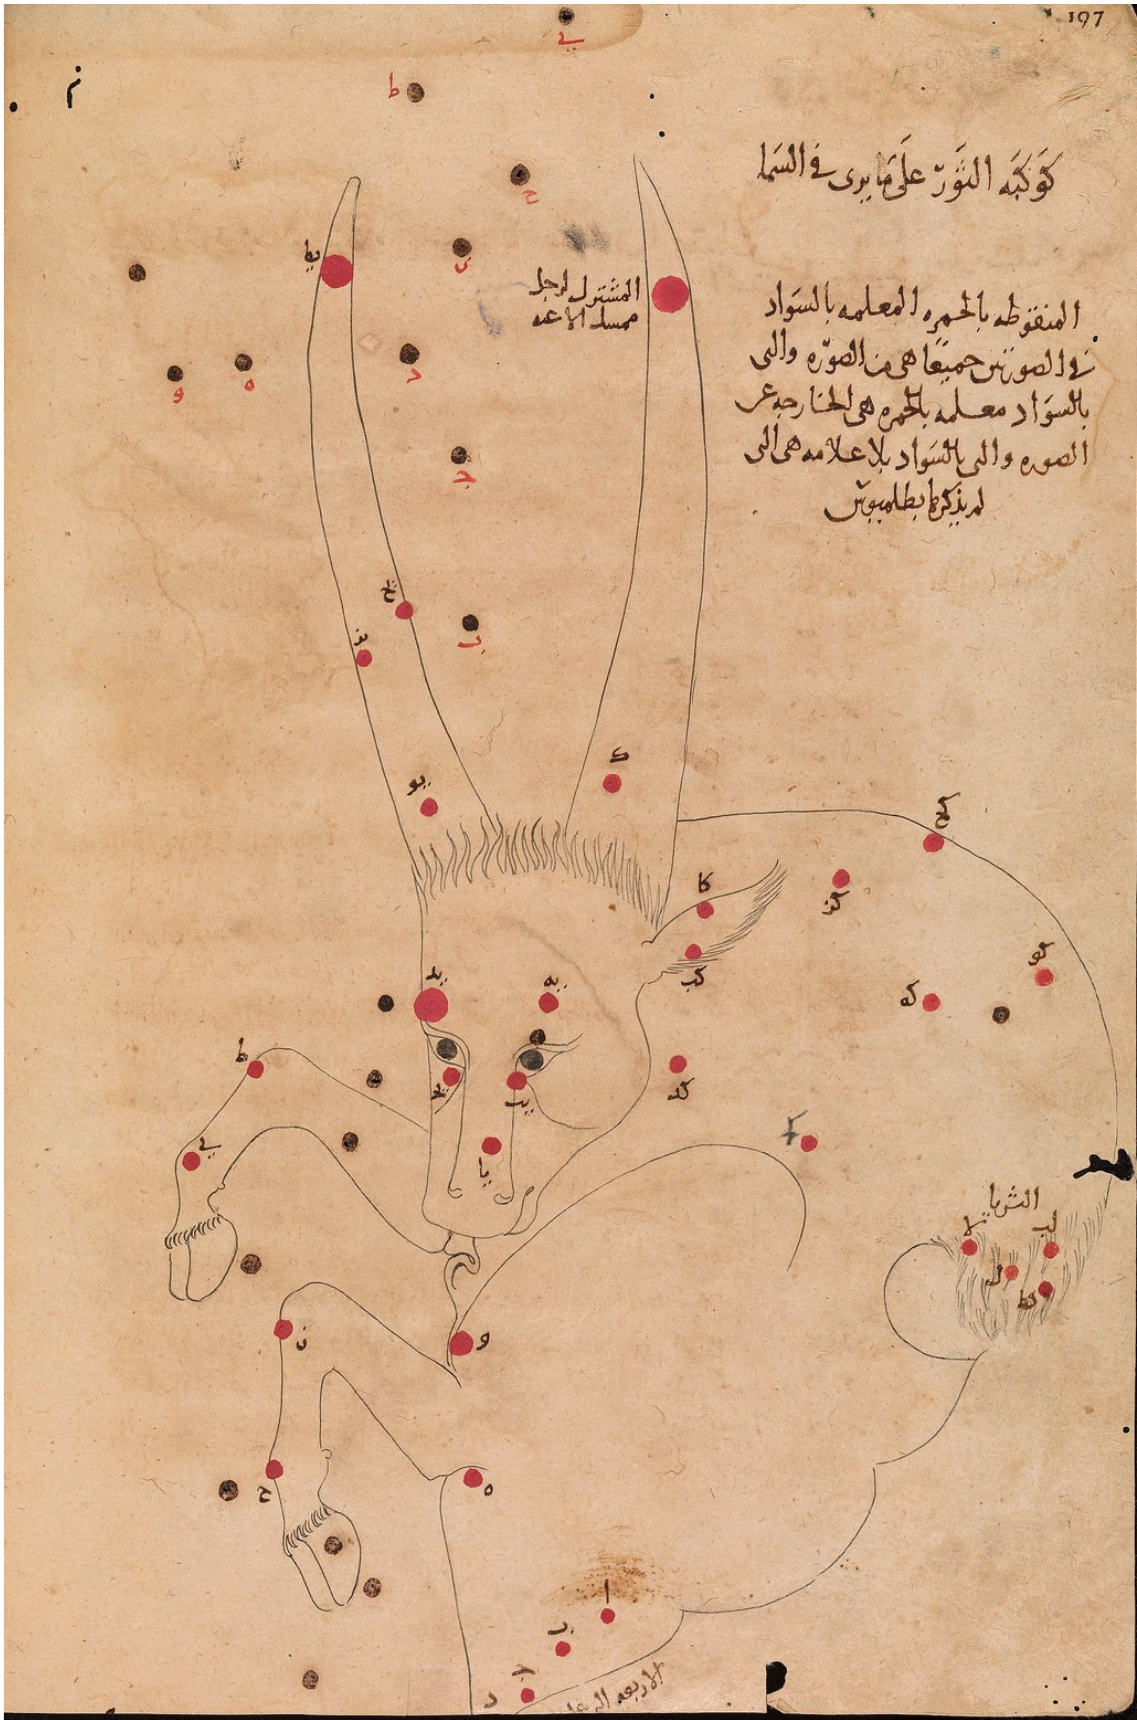 197
كوكبة الثور على ما يرى في السما
المنقوطه بالحمره المعلمه بالسواد
في الصورتين جميعًا هي من الصوره والتي
بالسواد معلمه بالحمره هي الخارجه عن
الصوره والتي بالسواد بلا علامه هي التي
لم يذكرها بطلميوس
المشترك لرجل
ممسك الاعنه
ى
ط
ح
ز
د
ه
و
ج
ب
يط
يح
يز
يو
ك
كا
كب
كح
كز
كو
كه
كد
يد
يه
يج
يب
يا
ط
ى
الثريا
ل
لب
لا
كط
و
ز
ح
ه
ا
ب
ج
د
الاربعه